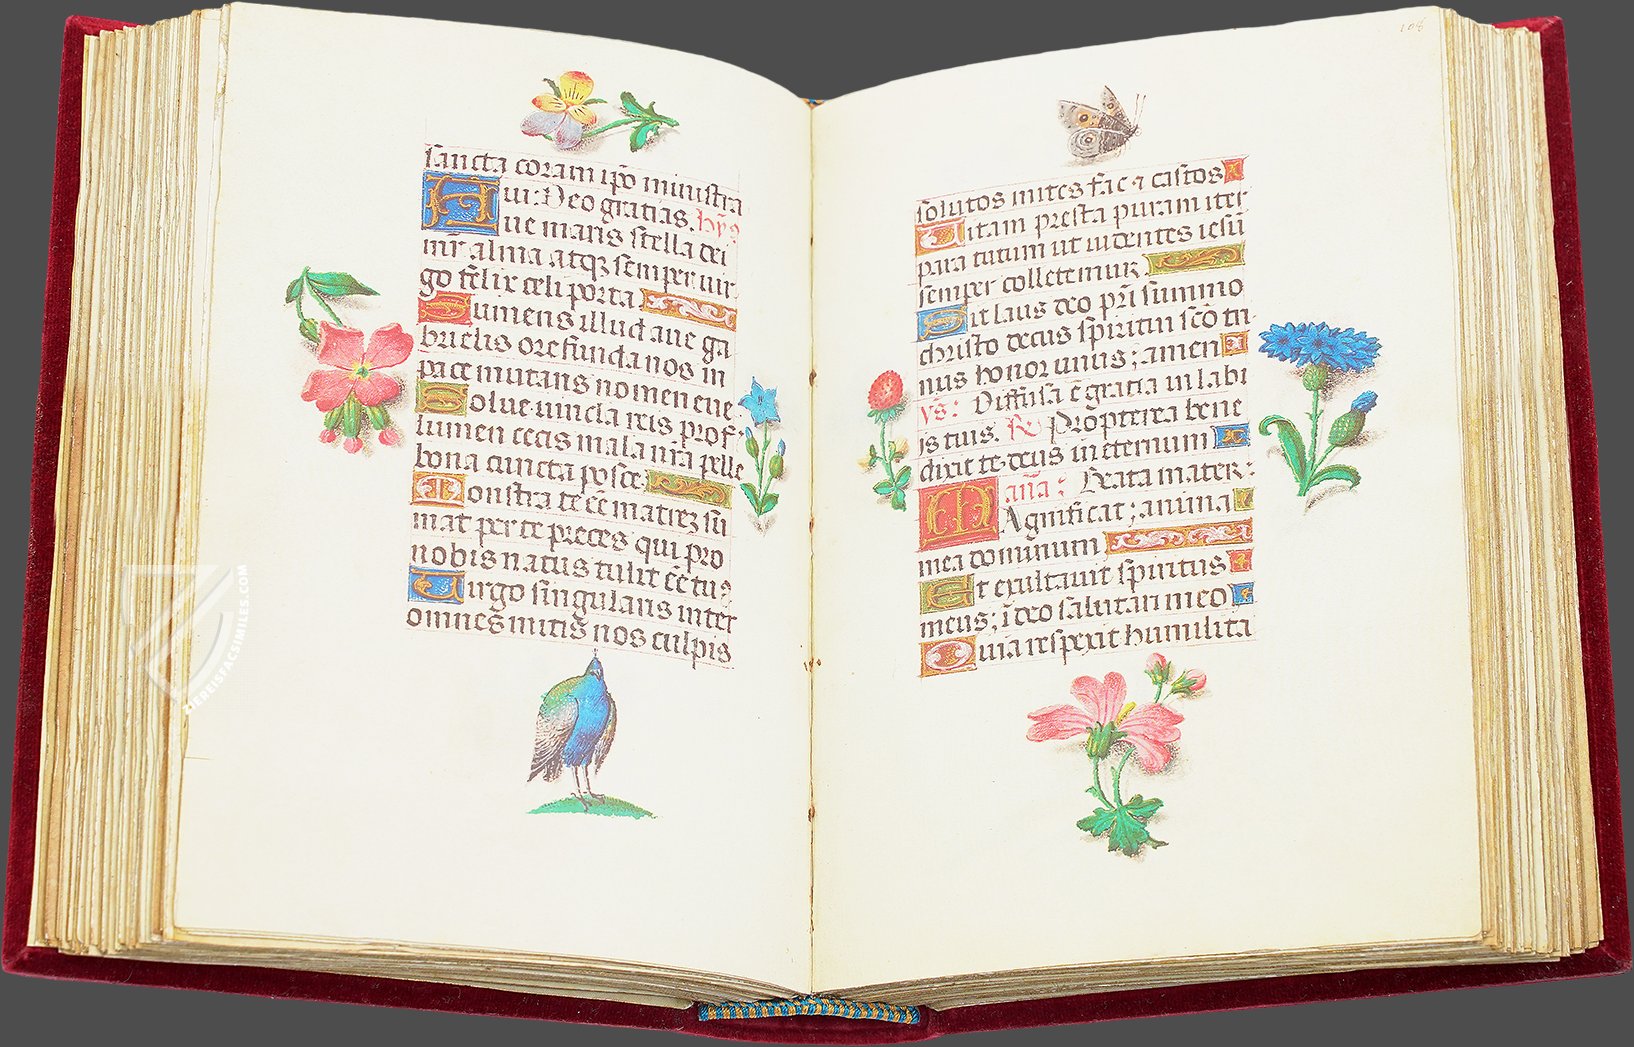 sancta coram ipo ministra
ui: Deo gratias. hỹ9
Aue maris stella dei
mr̃ alma atqȝ semper uir
go felix celi porta
Sumens illud aue ga
brielis ore funda nos in
pace mutans nomen eue.
Solue uincla reis prof:
lumen cecis mala nr̃a pelle
bona cuncta posce.
Monstra te eē matrez su
mat per te preces qui pro
nobis natus tulit eē tu9
Uirgo singularis inter
omnes mitis nos culpis
108
solutos mites fac ⁊ castos
Uitam presta puram iter
para tutum ut uidentes iesũ
semper colletemur
Sit laus deo pr̃i summo
christo decus spiritui scõ tri
nus honor unus; amen
V̄s: Diffusa ẽ gratia in labi
is tuis. R̃ Propterea bene
dixit te deus in eternum
anã: Beata mater:
MAgnificat; anima
mea dominum
Et exultauit spiritus
meus; ĩ deo salutari meo
Quia respexit humilita
ZIEREISFACSIMILES.COM